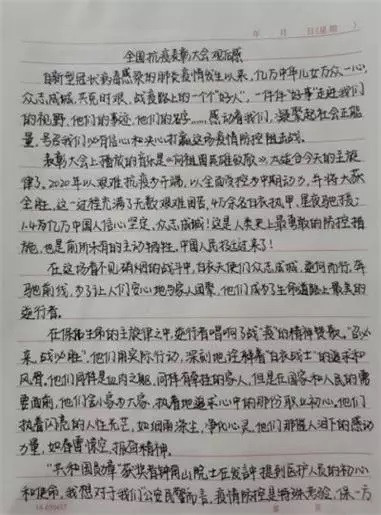 年 月 日(星期 )
全国抗疫表彰大会观后感
自新型冠状病毒感染的肺炎疫情发生以来,亿万中华儿女万众一心,
众志成城,共克时艰、战疫路上的一个个“好人”,一件件“好事”走进我们
的视野,他们的事迹,他们的……感动着我们,凝聚起社会正能
量,号召我们必有信心和决心打赢这场疫情防控阻击战。
表彰大会上播放的音乐是《向祖国英雄致敬》太适合今天的主旋
律了。2020年以艰难抗疫为开端,以全面攻控为中期动力,年将大获
全胜,这一过程充满了无数艰难困苦,4万余名白衣执甲,星夜驰援;
1.4万亿万中国人信心坚定、众志成城!这是人类史上最勇敢的防控措
施,也是前所未有的主动牺牲,中国人民挺过来了!
在这场看不见硝烟的战斗中,白衣天使们众志成城,逆向而行,奔
驰前线,为了让人们安心地与家人团聚,他们成为了生命道路上最美的
逆行者。
在保卫生命的主旋律之中,逆行者唱响了战“疫”的精神赞歌。“召必
来,战必胜”,他们用实际行动,深刻地诠释着“白衣战士”的追求和
风骨,他们同样是血肉之躯,同样有牵挂的家人,但是在国家和人民的需
要面前,他们舍小家为大家,执着地追求心中的那份职业初心,他们
执着闪亮的人性光芒,如细雨涤尘,净化心灵,他们那催人泪下的感动
力量,如春雷惊空,振奋精神。
“共和国勋章”获奖者钟南山院士在发言中提到医护人员的初心
和使命,我想对于我们“公安民警”而言,疫情防控是特殊考验,保一方